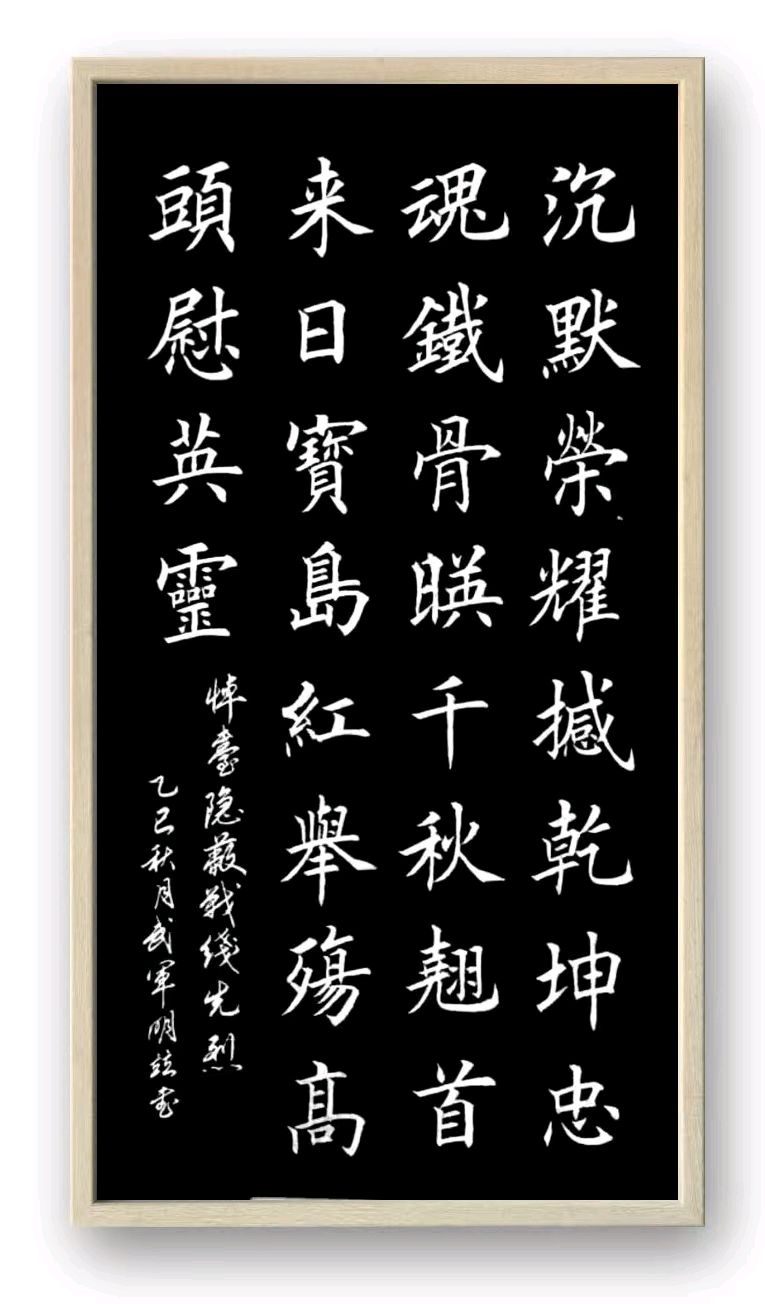 沉默榮耀撼乾坤忠
魂鐵骨暎千秋翹首
来日寶島紅舉殤高
頭慰英靈
悼臺隐蔽戰綫先烈
乙巳秋月武軍明竝书